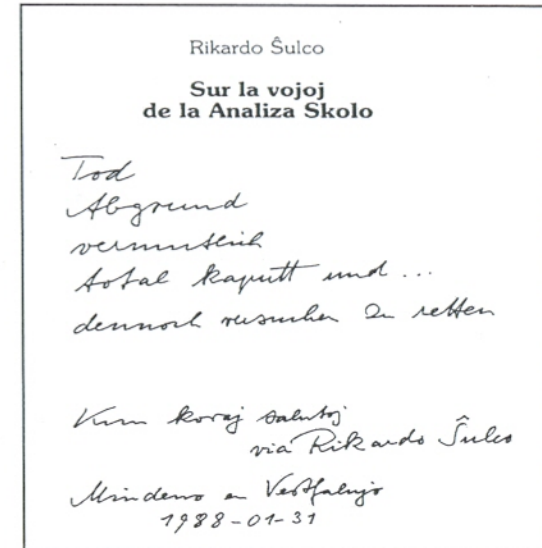 Rikardo Ŝulco
Sur la vojoj
de la Analiza Skolo
Tod
Abgrund
vermutlich
total kaputt und...
dennoch versuchen zu retten
Kun koraj salutoj
via Rikardo Ŝulco
Mindeno en Vestfalujo
1988-01-31